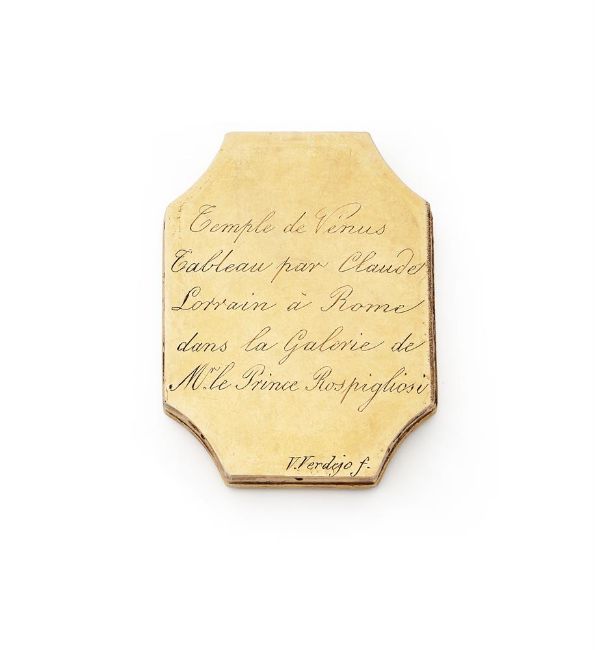 Temple de Vénus
Tableau par Claude
Lorrain à Rome
dans la Galerie de
Mr. le Prince Rospigliosi
V. Verdejo f.